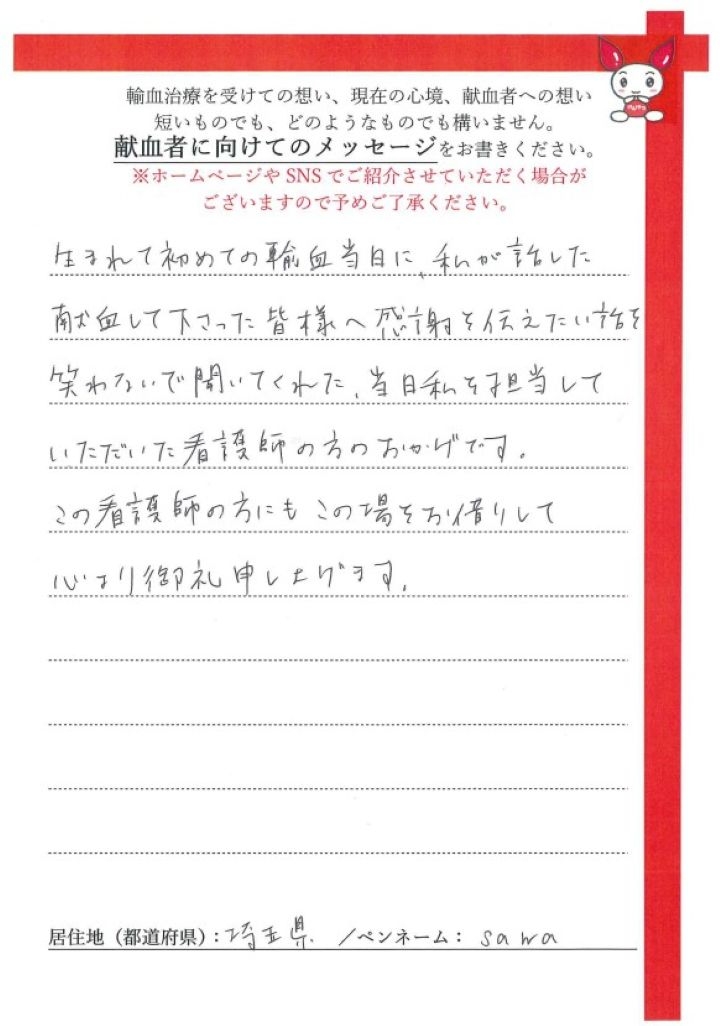 輸血治療を受けての想い、現在の心境、献血者への想い
短いものでも、どのようなものでも構いません。
献血者に向けてのメッセージをお書きください。
※ホームページや SNS でご紹介させていただく場合が
ございますので予めご了承ください。
生まれて初めての輸血当日に、私が話した
献血して下さった皆様へ感謝を伝えたい話を
笑わないで聞いてくれた、当日私を担当して
いただいた看護師の方のおかげです。
この看護師の方にもこの場をお借りして
心より御礼申し上げます。
居住地（都道府県）：埼玉県 ／ペンネーム： sawa